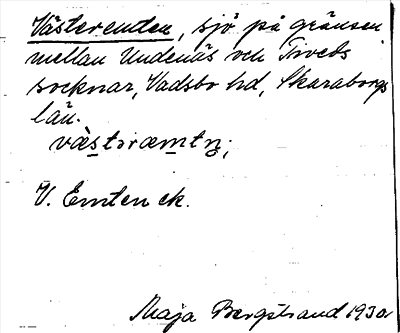 Västerenten, sjö på gränsen
mellan Undenäs och Tiveds
socknar, Vadsbo hd, Skaraborgs
län.
væstəræmtn̥;
V. Emten ek.
Maja Bergstrand 1930